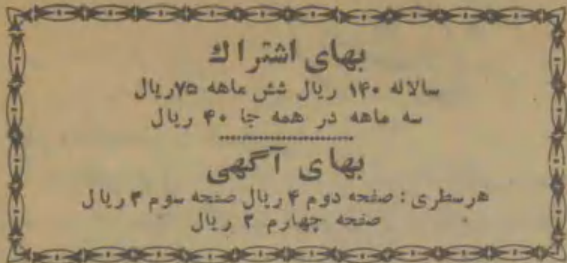 بهای اشتراك
سالاله ۱۴۰ ریال شش ماهه ۷۵ریال
سه ماهه در همه جا ۴۰ ریال
بهای آگهی
هرسطری : صفحه دوم ۴ ریال صفحه سوم ۳ ریال
صفحه چهارم ۲ ریال